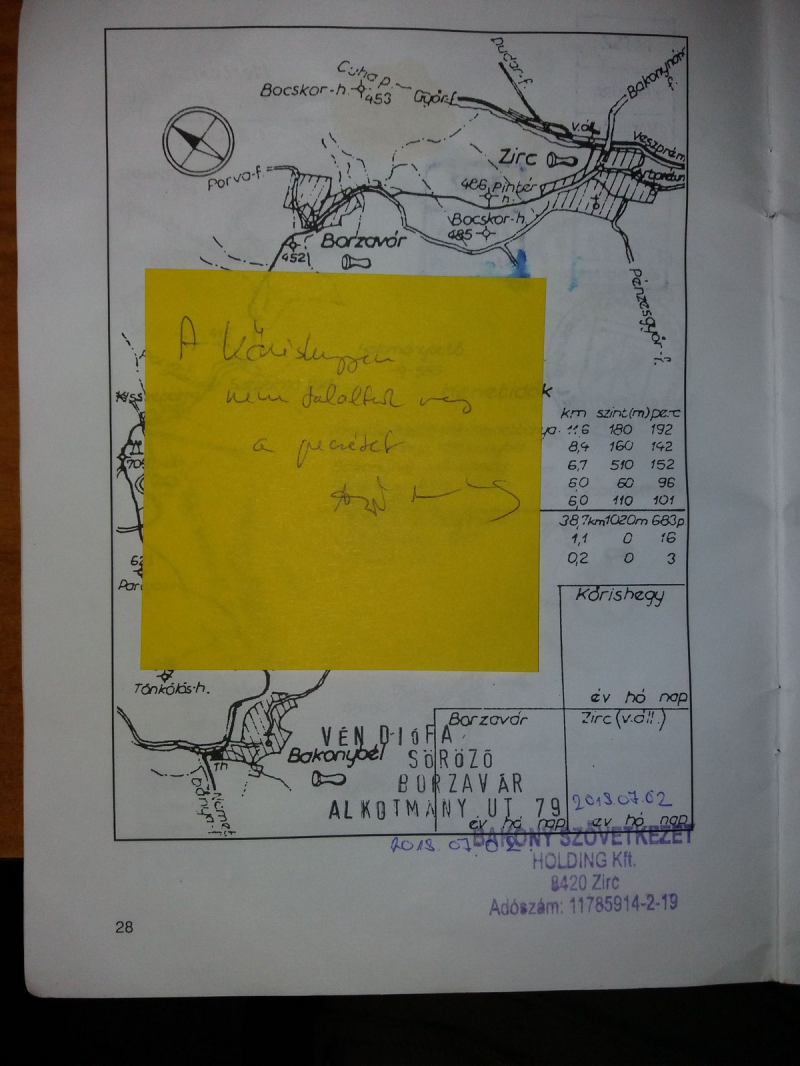 Cuha p.
Dudar-f.
Bakonynána-f.
Bocskor-h.
453
Győr-f.
v.áll.
Veszprém
Zirc
Arborétum
Porva-f.
486
Pintér
h.
Bocskor-h.
485
Borzavár
452
Pénzesgyőr-f.
A Kőrishegyen
nem találtuk meg
a pecsétet
k
km szint(m) perc
ya. 11,6 180 192
8,4 160 142
6,7 510 152
6,0 60 96
6,0 110 101
38,7km 1020m 683p
1,1 0 16
0,2 0 3
Kőrishegy
év hó nap
Tönkölös-h.
Borzavár
Zirc (v.áll.)
VÉN DIÓFA
SÖRÖZŐ
BORZAVÁR
ALKOTMÁNY UT 79
Bakonybél
Th
Német
bánya-f.
2013.07.02
év hó nap
év hó nap
2013.07.02
BAKONY SZÖVETKEZET
HOLDING Kft.
8420 Zirc
Adószám: 11785914-2-19
28